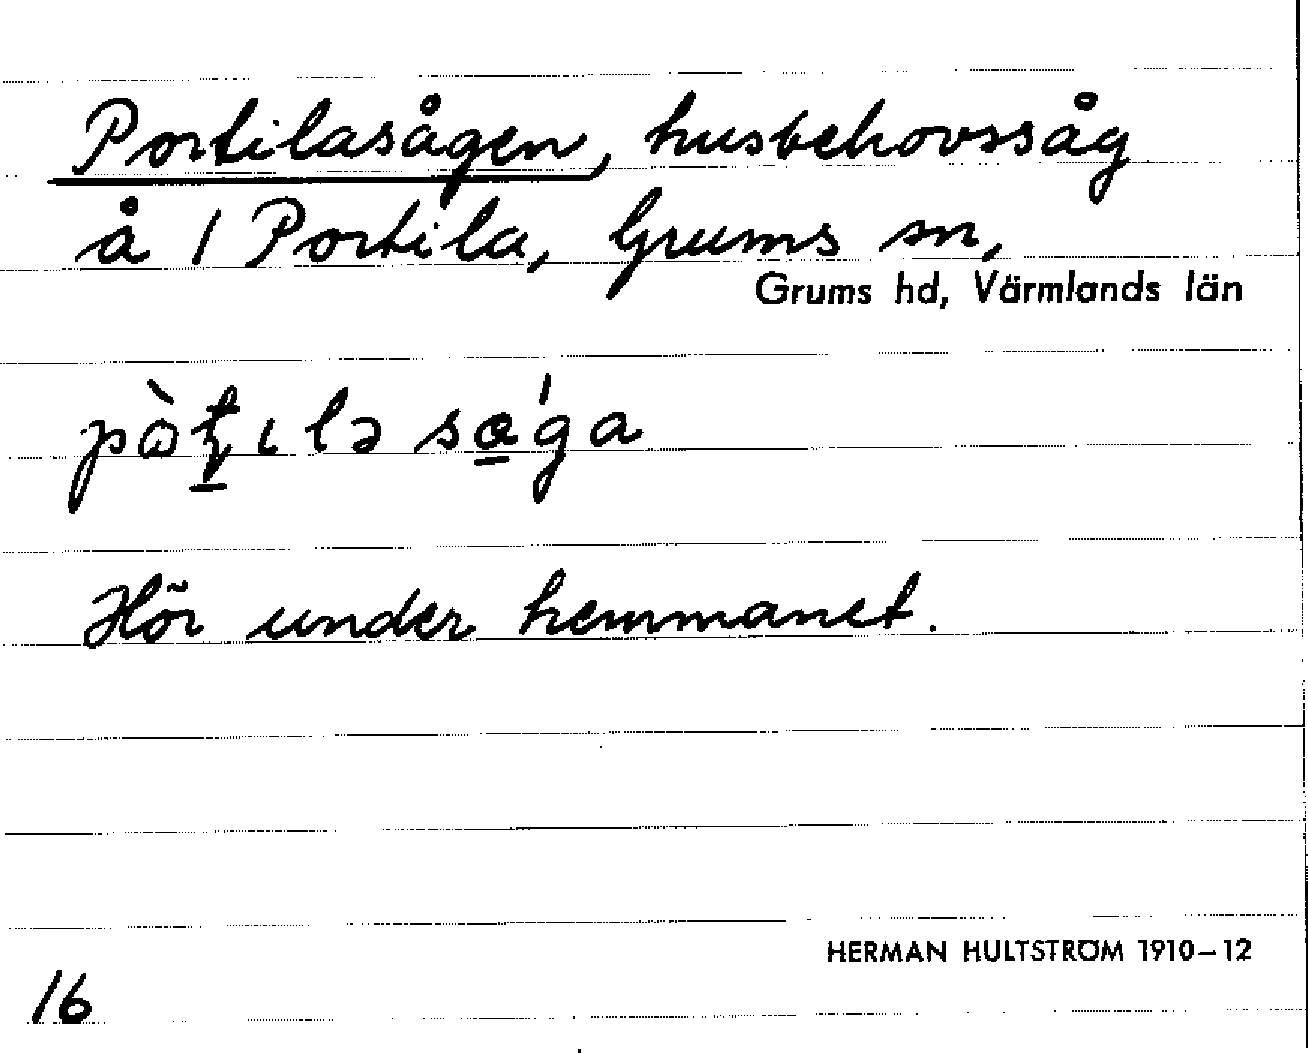 Portilasågen, husbehovssåg
å 1 Portila, Grums sn,
Grums hd, Värmlands län
Hör under hemmanet.
HERMAN HULTSTRÖM 1910–12
16